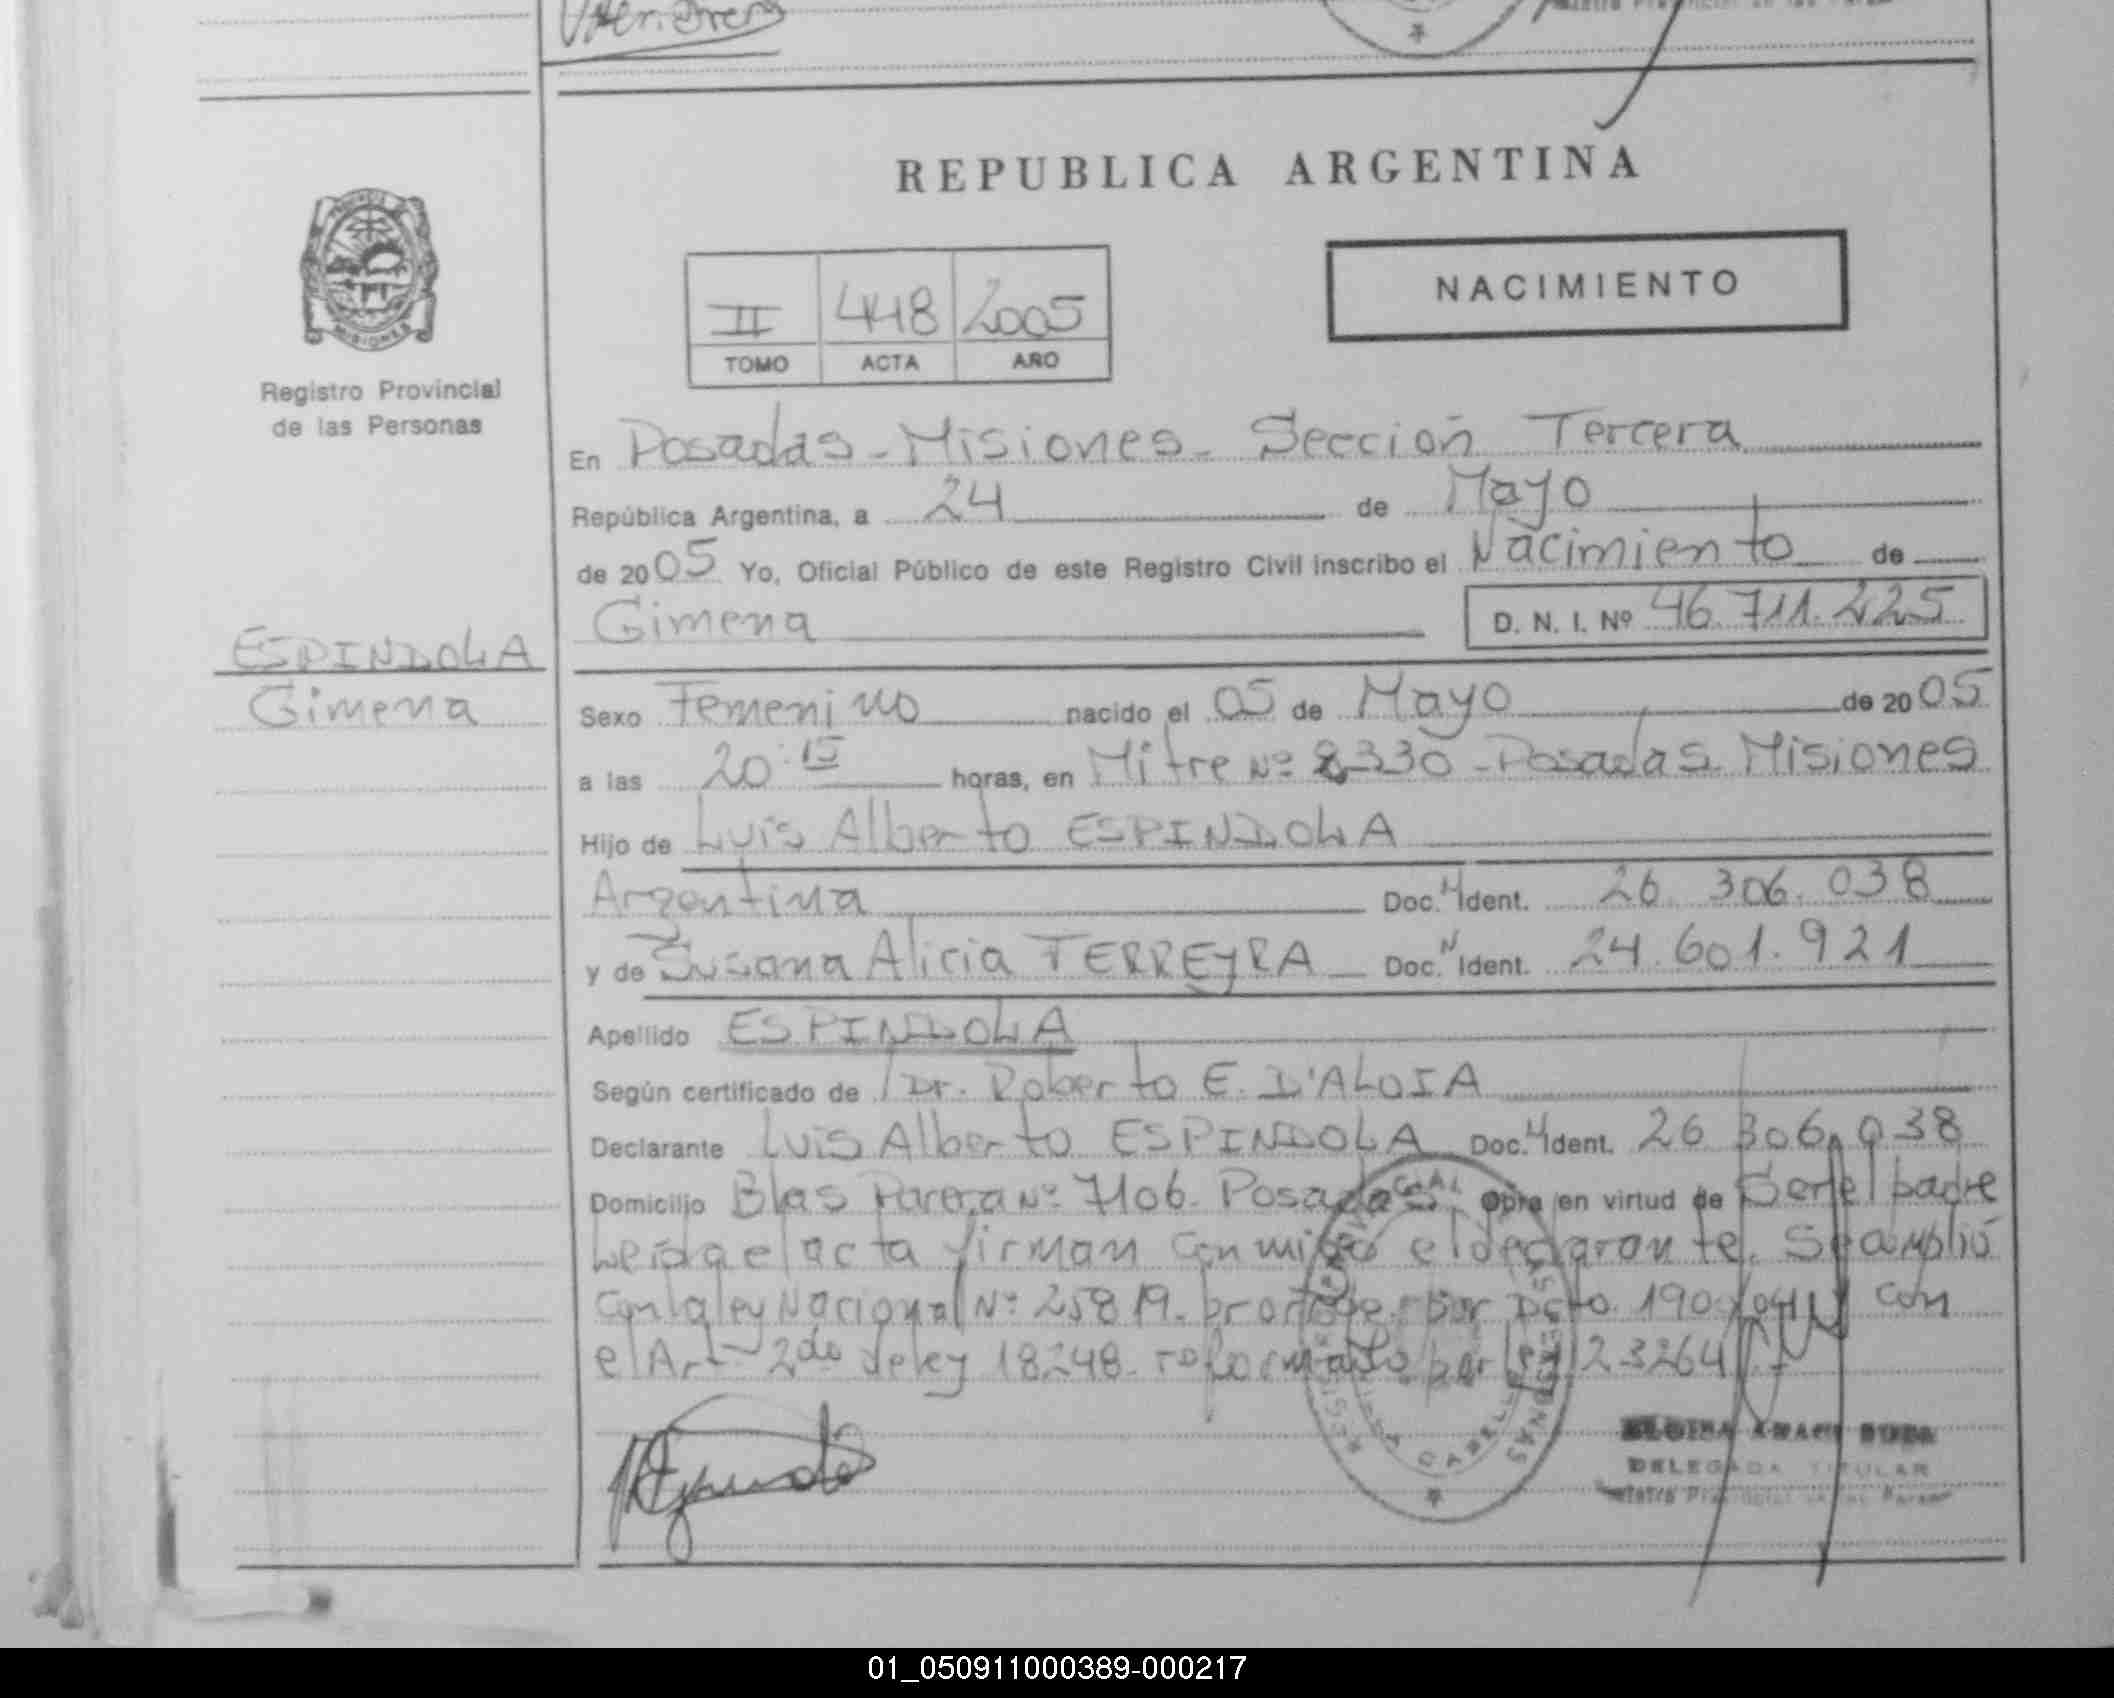 REPUBLICA ARGENTINA
NACIMIENTO
II 448 2005
TOMO ACTA AÑO
MISIONES
Registro Provincial
de las Personas
ESPINDOLA
Gimena
En Posadas - Misiones - Sección Tercera
República Argentina, a 24 de Mayo
de 2005 Yo, Oficial Público de este Registro Civil inscribo el Nacimiento de
Gimena D. N. I. Nº 46.711.225
Sexo Femenino nacido el 05 de Mayo de 2005
a las 20:15 horas, en Mitre Nº 2330 - Posadas Misiones
Hijo de Luis Alberto ESPINDOLA
Argentina Doc. N Ident. 26.306.038
y de Susana Alicia TERREyRA Doc. N Ident. 24.601.921
Apellido ESPINDOLA
Según certificado de Dr. Roberto E. D'ALOIA
Declarante Luis Alberto ESPINDOLA Doc. N Ident. 26.306.038
Domicilio Blas Parera Nº 7106. Posadas Obra en virtud de Ser el padre
Leída el acta firman conmigo el declarante. Se cumplió
con la ley Nacional Nº 25819. por Dcto. 190/04 y con
el Art. 2do de ley 18248. reformado por ley 23264
DELEGADA TITULAR
01_050911000389-000217